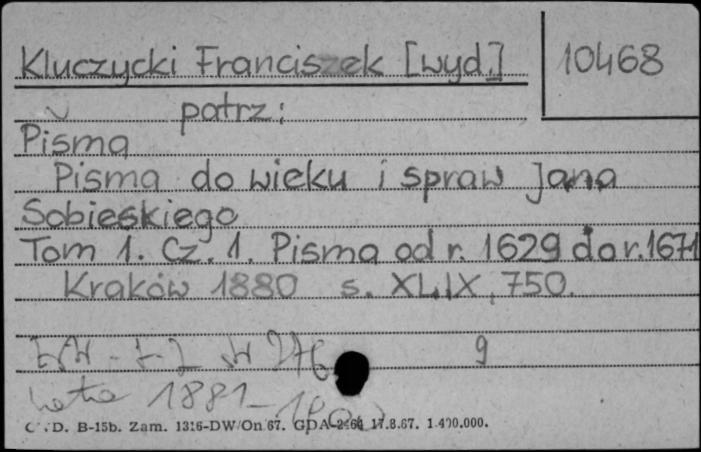 Kluczycki Franciszek [wyd.]
10468
patrz:
Pisma
Pisma do wieku i spraw Jana
Sobieskiego
Tom 1. Cz. 1. Pisma od r. 1629 do r. 1671
Kraków 1880 s. XLIX, 750.
9
1881-1900
D. B-15b. Zam. 1316-DW/On/67. GDA-2-64 17.8.67. 1.400.000.